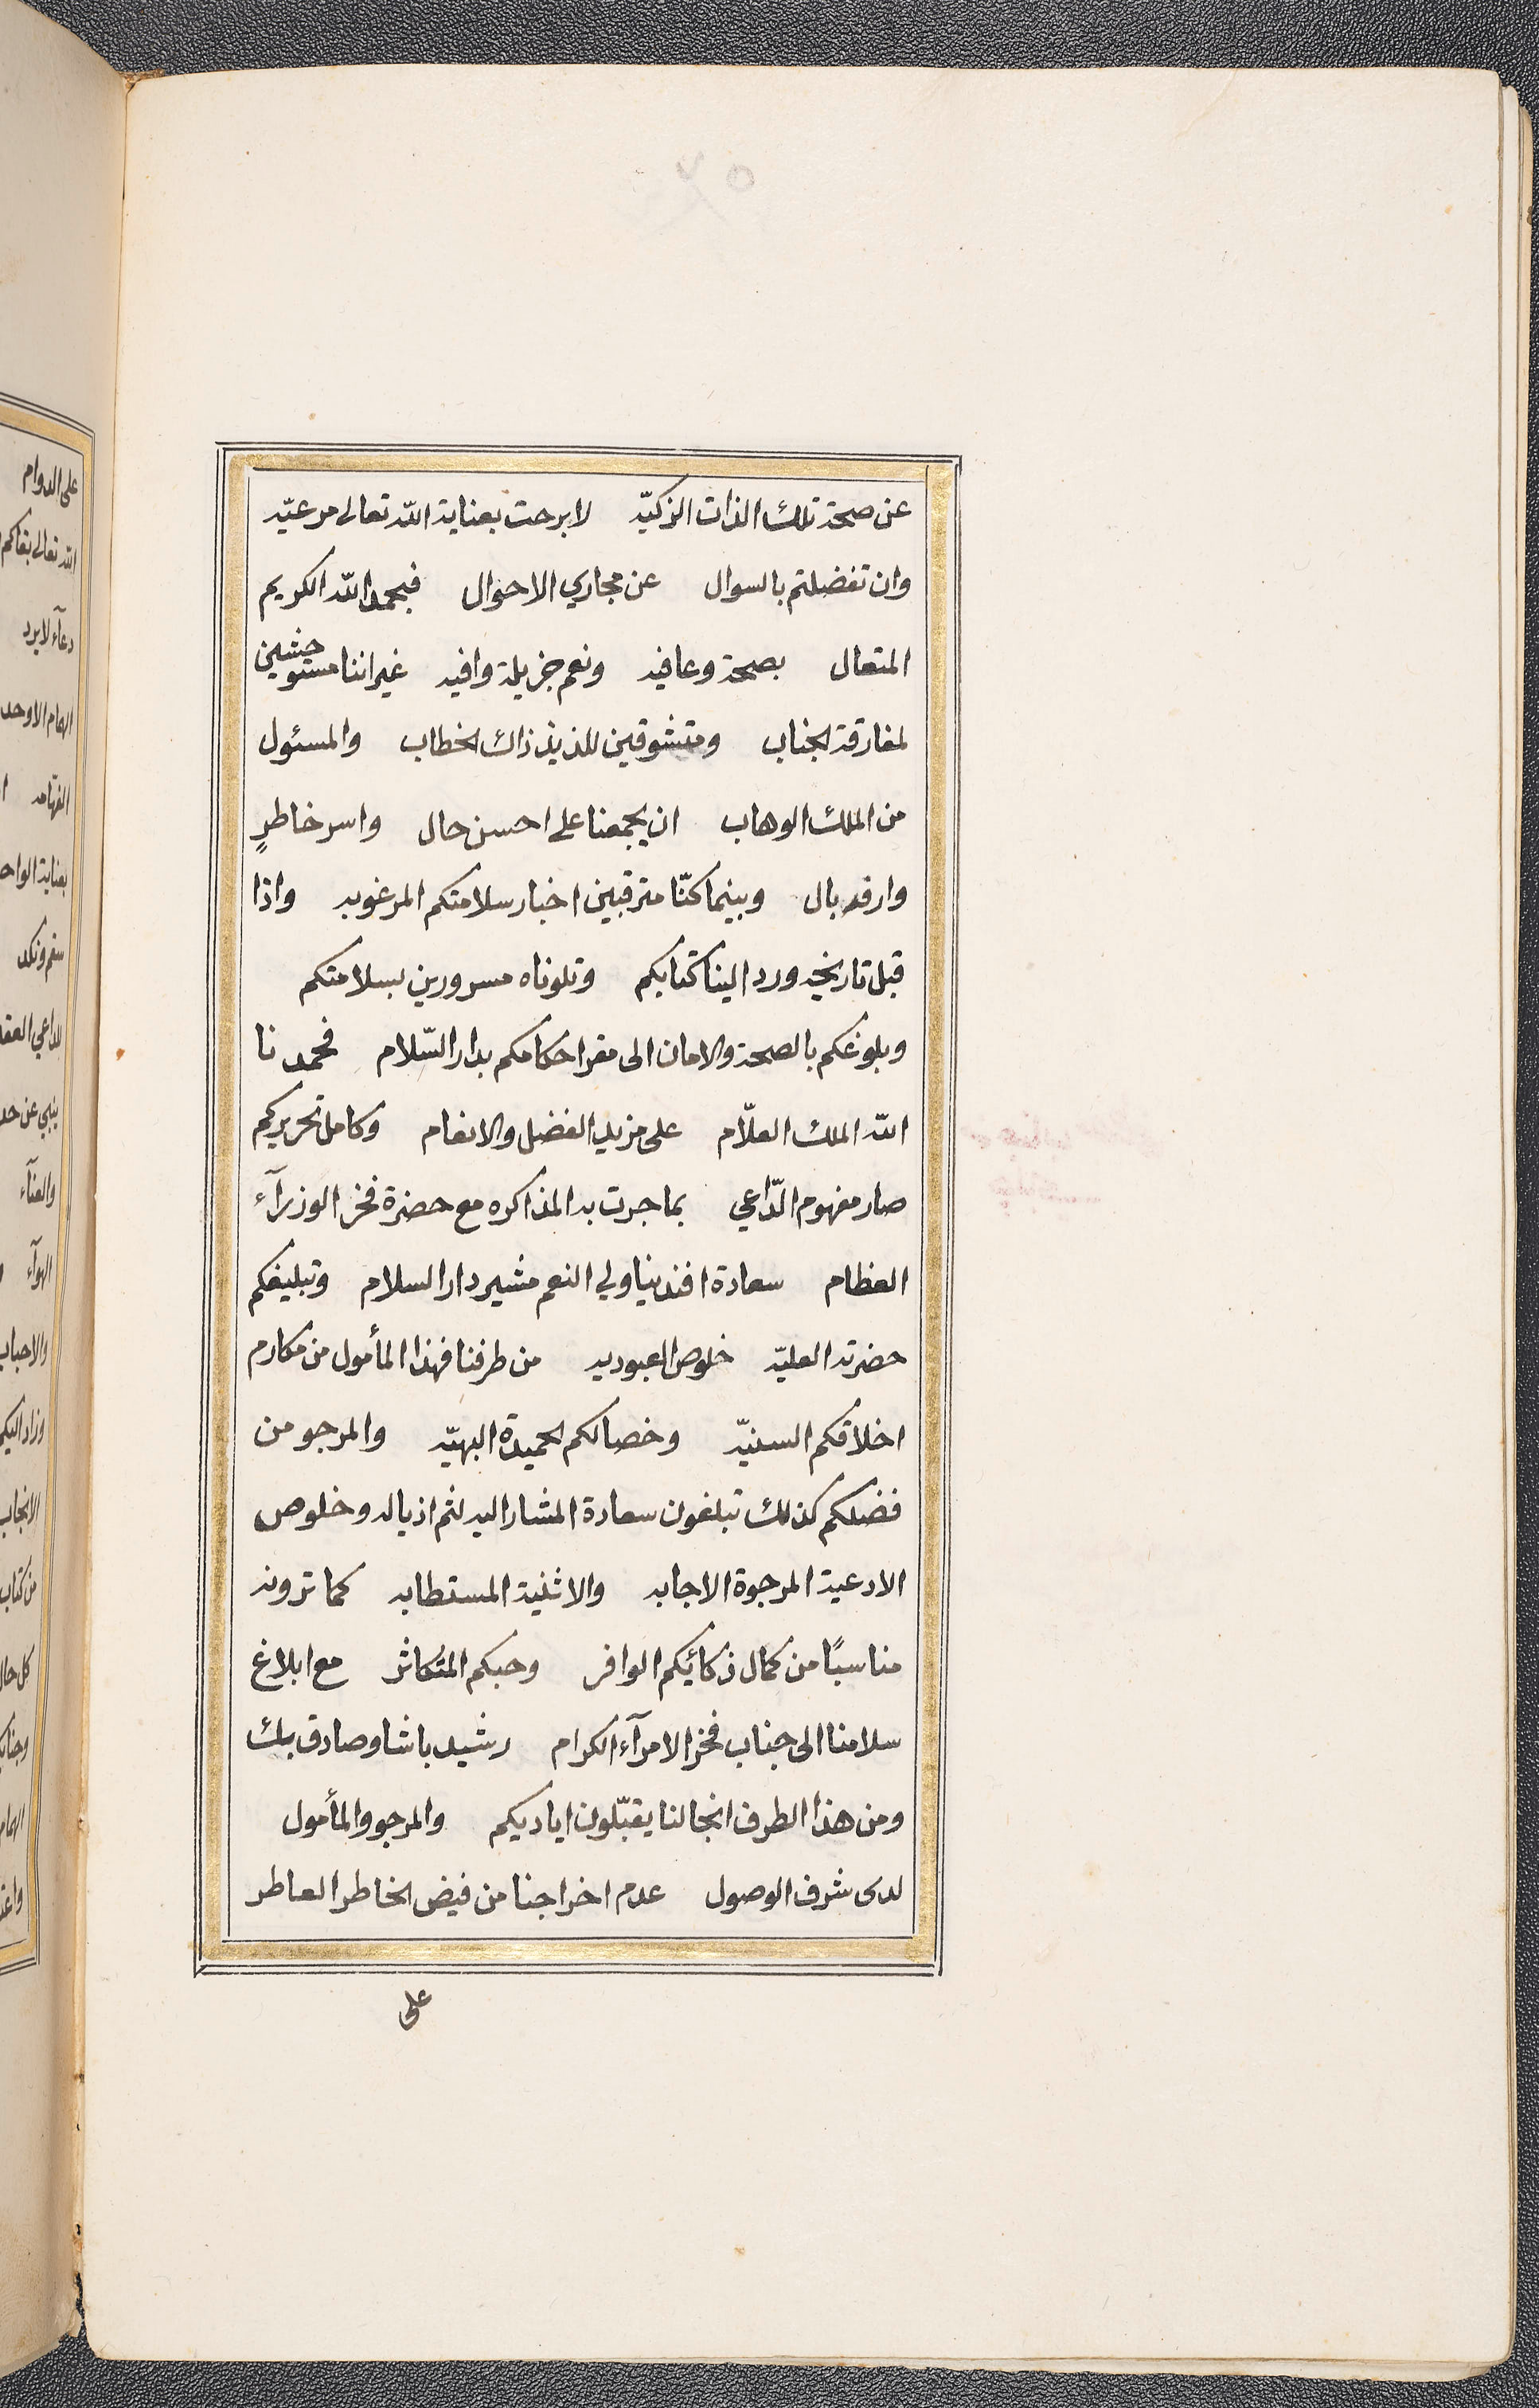 عن صحة تلك الذات الزكيّه لا برحت بعناية الله تعالى مرعيّه
وان تفضلتم بالسوال عن مجاري الاحوال فبحمد الله الكريم
المتعال بصحة وعافيه ونعم جزيلة وافيه غير اننا مستوحشين
لمفارقة الجناب ومتشوقين للذيذ ذاك الخطاب والمسئول
من الملك الوهاب ان يجمعنا على احسن حال واسر خاطرٍ
وارفه بال وبينما كنّا مترقبين اخبار سلامتكم المرغوبه واذا
قبل تاريخه ورد الينا كتابكم وتلوناه مسرورين بسلامتكم
وبلوغكم بالصحة والامان الى مقر احكامكم بدار السّلام فحمدنا
الله الملك العلّام على مزيد الفضل والانعام وكامل تحريركم
صار مفهوم الدّاعي بما جرت به المذاكره مع حضرة فخر الوزرآء
العظام سعادة افندينا ولي النعم مشير دار السلام وتبليغكم
حضرته العليّه خلوص العبوديه من طرفنا فهذا المأمول من مكارم
اخلاقكم السنيّه وخصالكم الحميدة البهيّه والمرجو من
فضلكم كذلك تبلغون سعادة المشار اليه لثم اذياله وخلوص
الادعية المرجوة الاجابه والاثنية المستطابه كما ترونه
مناسبًا من كمال ذكائيكم الوافر وحبكم المتكاثر مع ابلاغ
سلامنا الى جناب فخر الامرآء الكرام رشيد باشا وصادق بك
ومن هذا الطرف انجالنا يقبّلون اياديكم والمرجو والمأمول
لدى شرف الوصول عدم اخراجنا من فيض الخاطر العاطر
على
على الدوام
الله تعالى بقاكم
دعآء لا يرد
الهمام الاوحد
الفهّامه
سقم ونكد
والعنآء
الهوآء
من كتاب
كل حال